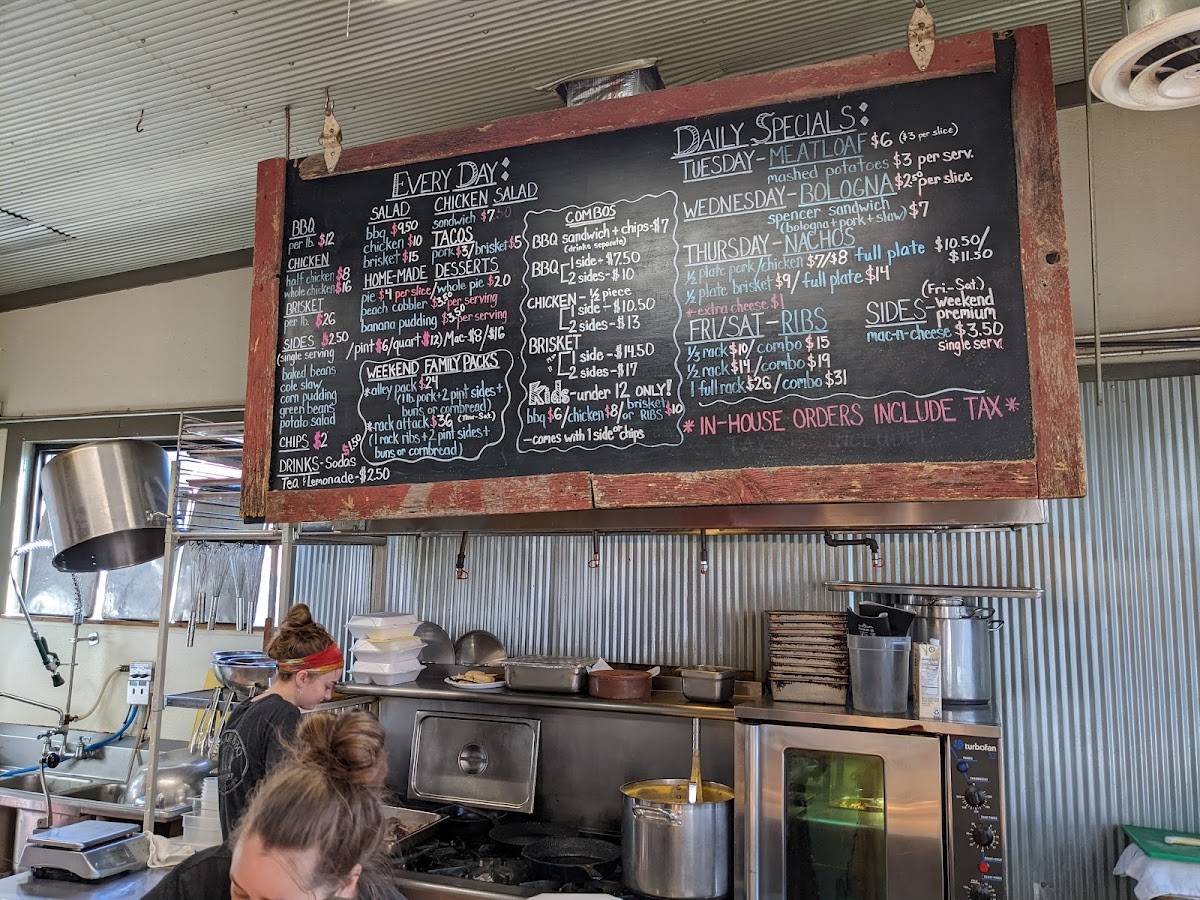 EVERY DAY:
BBQ
per lb. $12
CHICKEN
half chicken $8
whole chicken $16
BRISKET
per lb. $26
SIDES $2.50
(single serving /pint $6/quart $12)/Mac-$8/$16
baked beans
cole slaw
corn pudding
green beans
potato salad
CHIPS $2
DRINKS-Sodas $1.50
Tea & Lemonade-$2.50
SALAD
bbq $9.50
chicken $10
brisket $15
CHICKEN SALAD
sandwich $7.50
TACOS
pork $3/brisket $5
HOME-MADE DESSERTS
pie $4 per slice/whole pie $20
peach cobbler $3.50 per serving
banana pudding $3.50 per serving
WEEKEND FAMILY PACKS
*alley pack $24
(1 lb pork+2 pint sides+
buns or cornbread)
*rack attack $36 (Thur-Sat)
(1 rack ribs+2 pint sides+
buns or cornbread)
COMBOS
BBQ sandwich + chips-$7
(drinks separate)
BBQ-1 side-$7.50
2 sides-$10
CHICKEN-½ piece
1 side-$10.50
2 sides-$13
BRISKET
1 side-$14.50
2 sides-$17
Kids-under 12 ONLY!
bbq $6/chicken $8/brisket or RIBS $10
-comes with 1 side or chips
DAILY SPECIALS:
TUESDAY-MEATLOAF $6 ($3 per slice)
mashed potatoes $3 per serv.
WEDNESDAY-BOLOGNA $2.50 per slice
spencer sandwich
(bologna+pork+slaw) $7
THURSDAY-NACHOS
½ plate pork/chicken $7/$8 full plate $10.50/
$11.50
½ plate brisket $9/full plate $14
+extra cheese $1
FRI/SAT-RIBS
⅓ rack $10/combo $15
½ rack $14/combo $19
1 full rack $26/combo $31
SIDES-(Fri-Sat)
weekend
premium
mac-n-cheese $3.50
single serv.
*IN-HOUSE ORDERS INCLUDE TAX*
turbofan